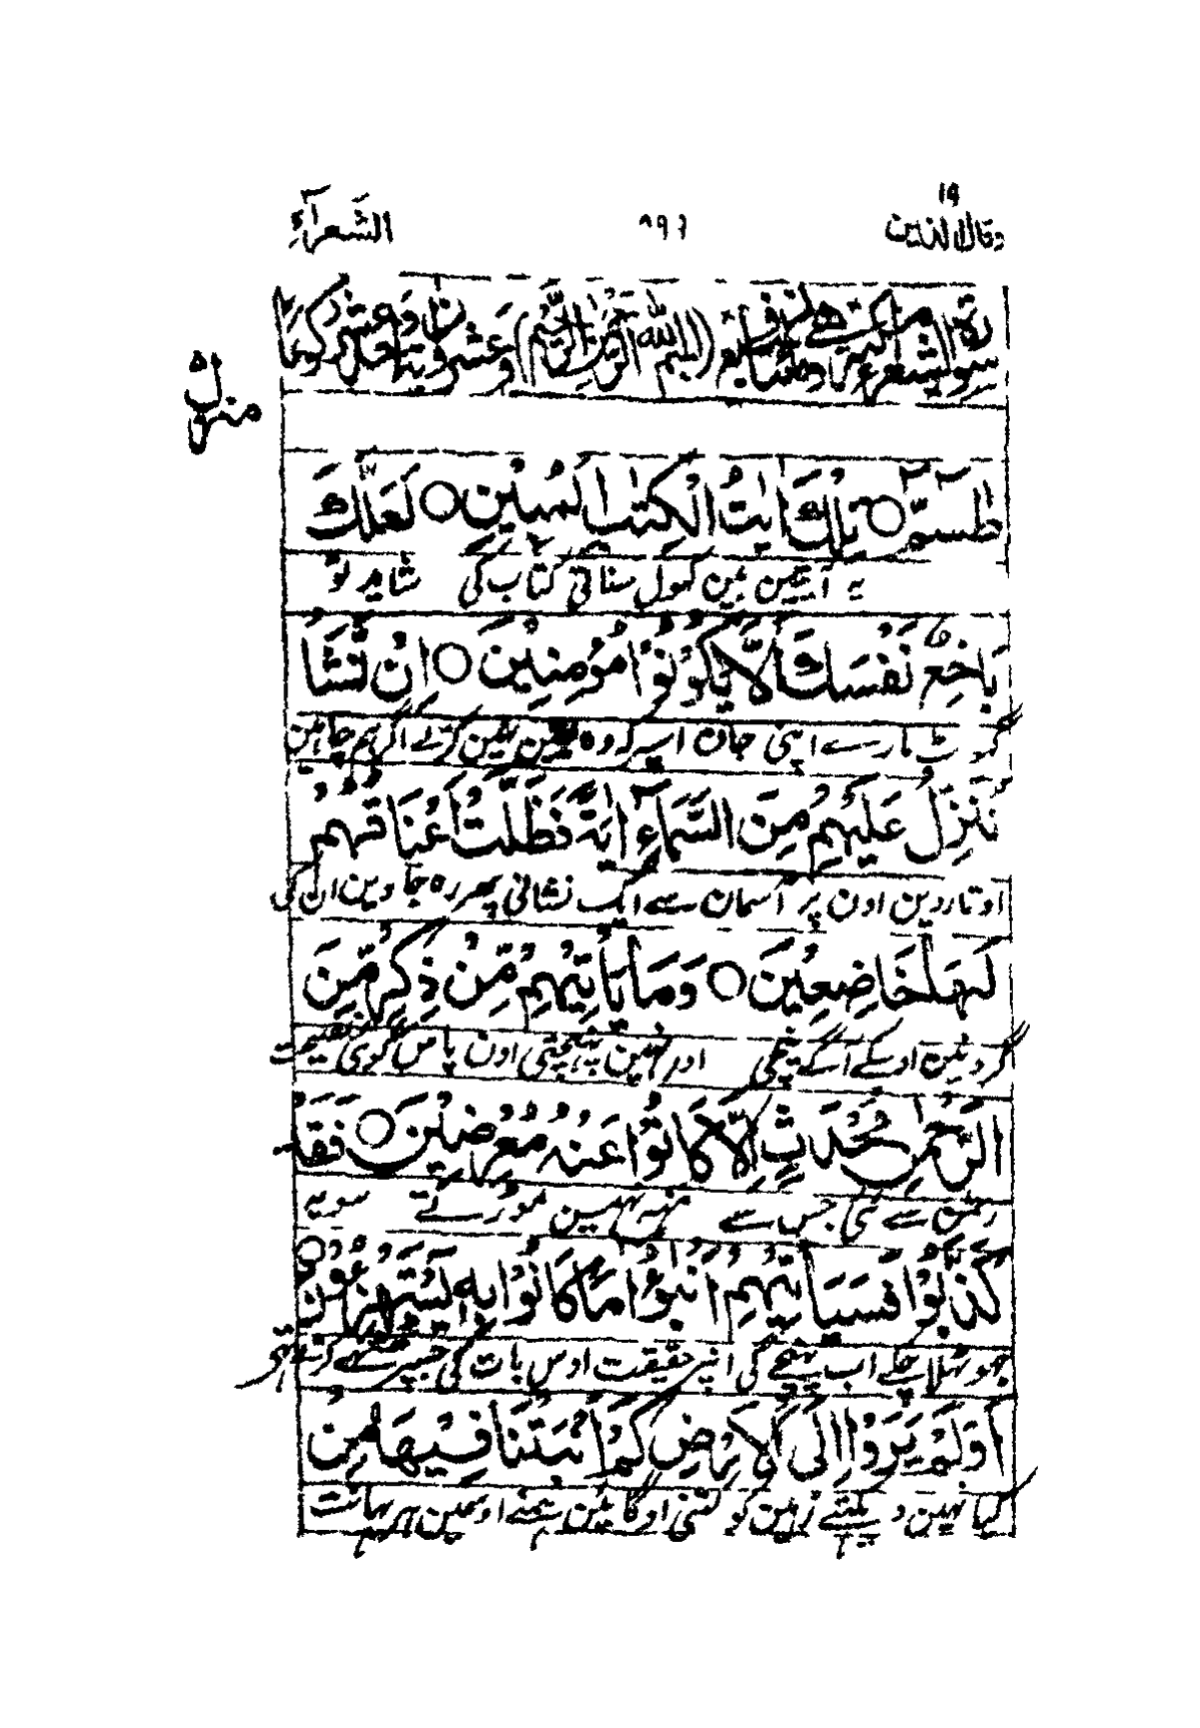 وقال الذین ١٩
٨٩٦
الشعرآء
منزل ۵
سورة الشعرآء مکیة وهی مائتان (بسم الله الرحمن الرحیم) وعشرون
طٰسٓمّٓ ○ تِلْكَ اٰيٰتُ الْكِتٰبِ الْمُبِيْنِ ○ لَعَلَّكَ
یہ آیتین ہین کھول سناتی کتاب کی شاید تو
بَاخِعٌ نَّفْسَكَ اَلَّا يَكُوْنُوْا مُؤْمِنِيْنَ ○ اِنْ نَّشَاْ
گھونٹ مارے اپنی جان اسپر کہ وہ یقین نہین کرتے اگر ہم چاہین
نُنَزِّلْ عَلَيْهِمْ مِنَ السَّمَآءِ اٰيَةً فَظَلَّتْ اَعْنَاقُهُمْ
اوتاردین اون پر آسمان سے ایک نشانی پھر رہ جاوین ان کی
لَهَا خَاضِعِيْنَ ○ وَمَا يَاْتِيْهِمْ مِّنْ ذِكْرٍ مِّنَ
گردنین اوسکے آگے نیچی اور نہین پہنچتی اون پاس کوئی نصیحت
الرَّحْمٰنِ مُحْدَثٍ اِلَّا كَانُوْا عَنْهُ مُعْرِضِيْنَ ○ فَقَدْ
رحمٰن سے نئی جس سے منہ نہین موڑتے سو یہ
كَذَّبُوْا فَسَيَاْتِيْهِمْ اَنْۢبٰٓؤُا مَا كَانُوْا بِهٖ يَسْتَهْزِءُوْنَ ○
جھوٹھلا چکے اب پہنچے گی اپنر حقیقت اوس بات کی جسپر ٹھٹھے کرتے تھے
اَوَلَمْ يَرَوْا اِلَى الْاَرْضِ كَمْ اَنْۢبَتْنَا فِيْهَا مِنْ
کیا نہین دیکھتے زمین کو کتنی اوگائین ہمنے اوسمین ہر بھانت